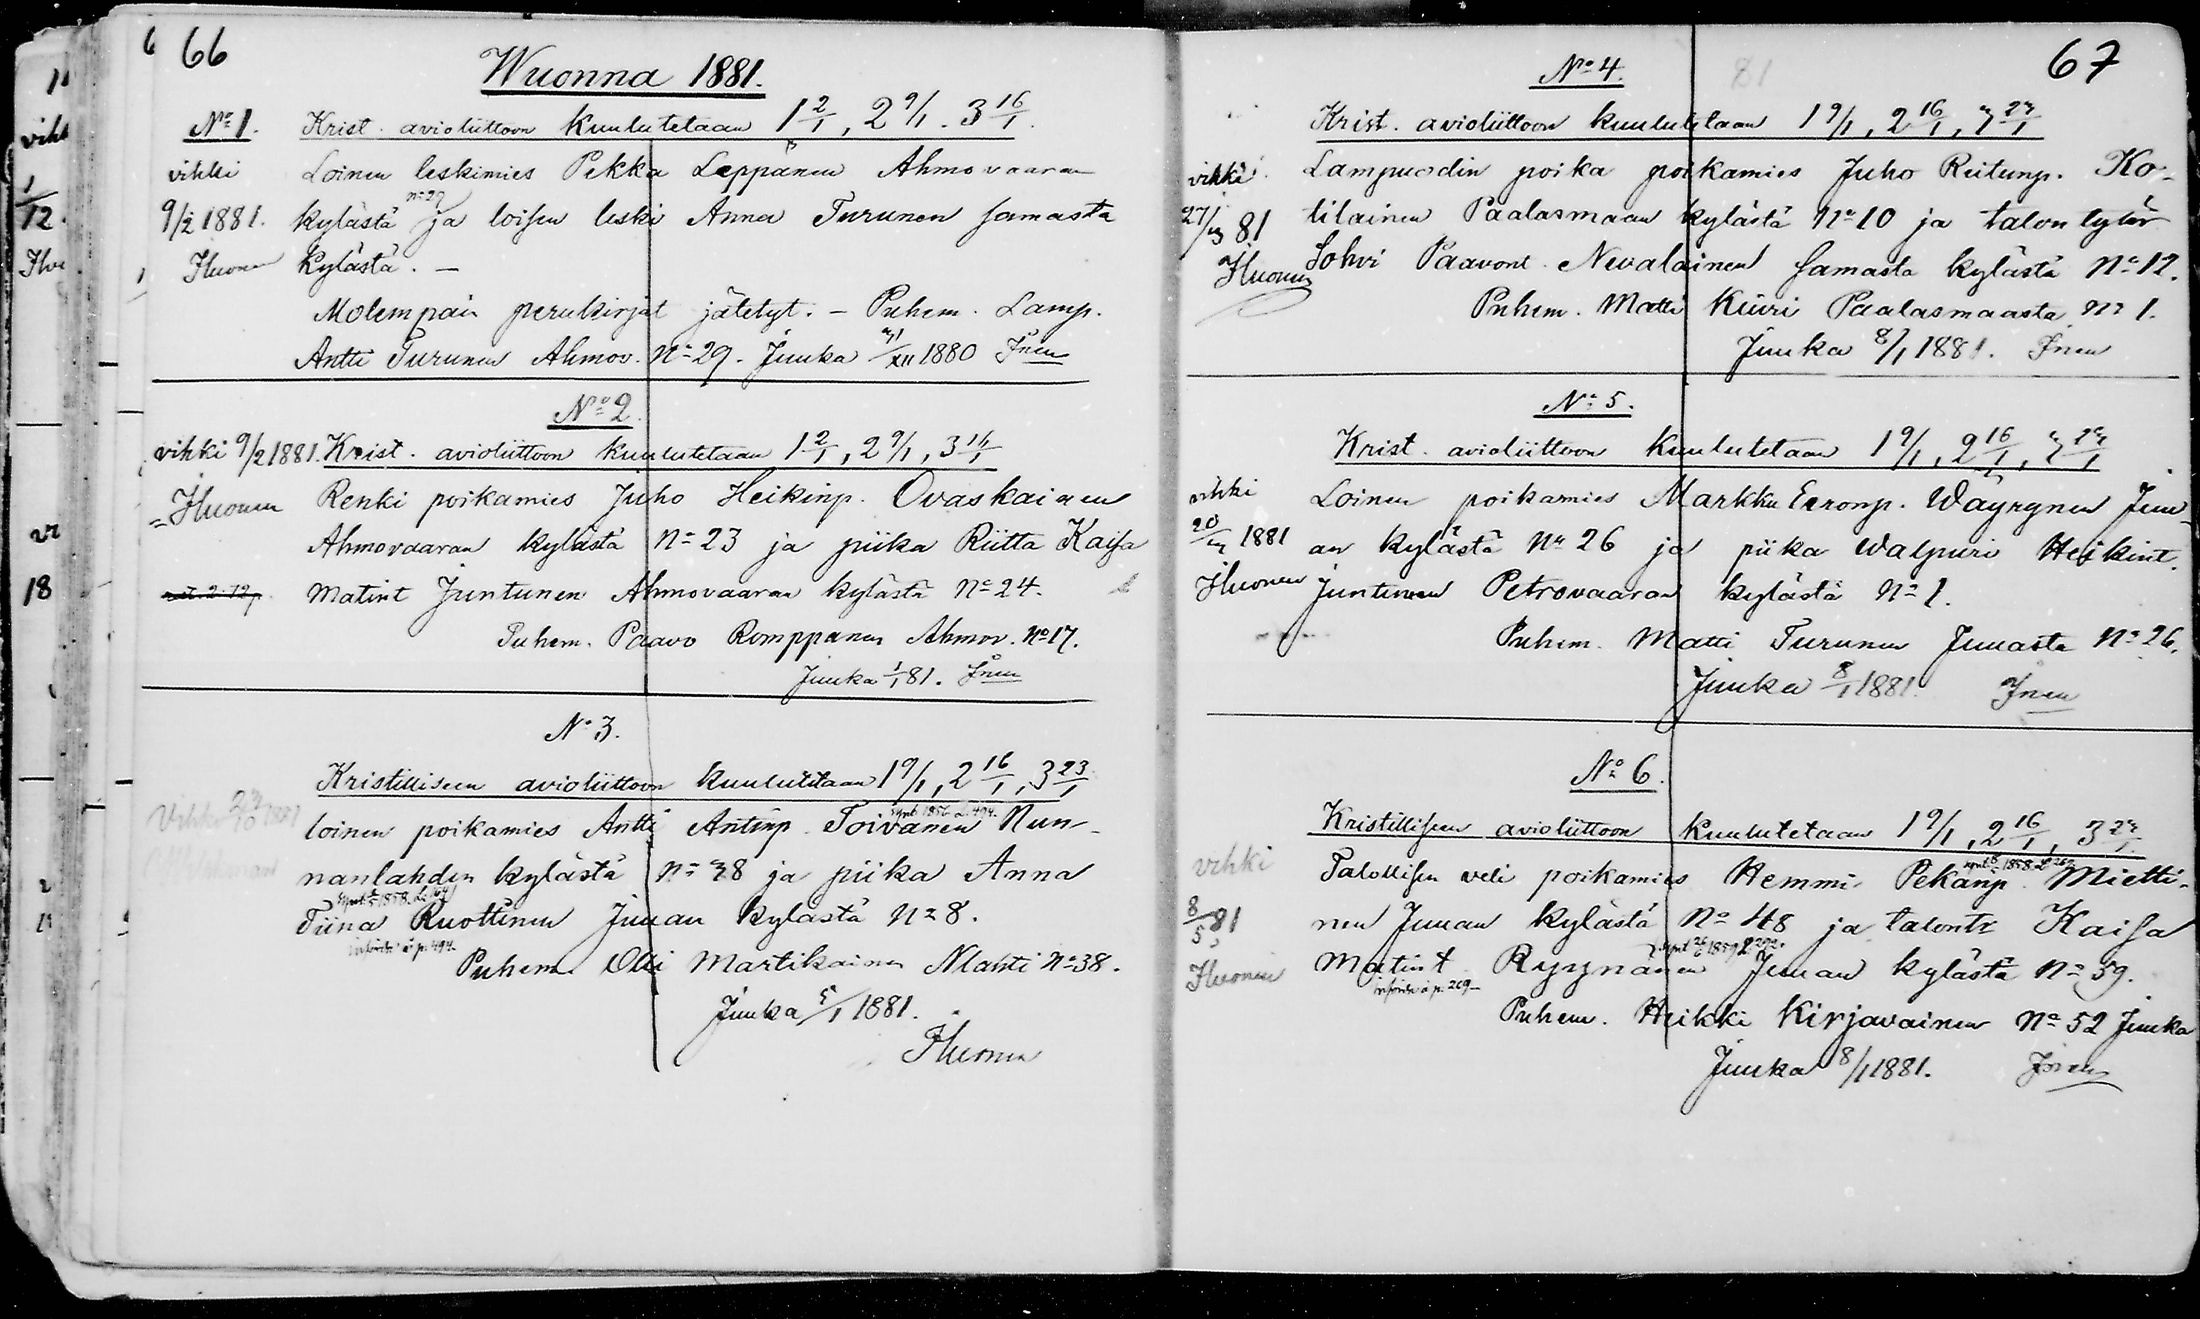 66
Wuonna 1881.
No 1. Krist. avioliittoon kuulutetaan 1 2/1, 2 9/1. 3 16/1.
vihki Loinen leskimies Pekka Leppänen Ahmovaaran
no 29
9/2 1881. kylästä ja loisen leski Anna Turunen samasta
Ihuonen kylästä. —
Molempain perukirjat jätetyt. — Puhem. Lamp.
Antti Turunen Ahmov. No 29. Juuka 31/XII 1880 Inen
No 2.
vihki 9/2 1881. Krist. avioliittoon kuulutetaan 1 2/1, 2 9/1, 3 16/1
Ihuonen Renki poikamies Juho Heikinp. Ovaskainen
Ahmovaaran kylästä No 23 ja piika Riitta Kaisa
Matint Juntunen Ahmovaaran kylästä No 24.
Puhem. Paavo Romppanen Ahmov. No 17.
Juuka 1/1 81. Inen
No 3.
Kristilliseen avioliittoon kuulutetaan 1 9/1, 2 16/1, 3 23/1
Vihki 23/10 1881 loinen poikamies Antti Antinp. Toivanen Nun-
nanlahden kylästä No 38 ja piika Anna
Tiina Ruottinen Juuan kylästä No 8.
Puhem. Olli Martikainen Nlahti No 38.
Juuka 5/1 1881.
Ihuonen
67
81
No 4.
Krist. avioliittoon kuulutetaan 1 9/1, 2 16/1, 3 23/1
vihki Lampuodin poika poikamies Juho Reitunp. Ko-
27/3 81 tilainen Paalasmaan kylästä No 10 ja talon tytär
Ihuonen Sohvi Paavont. Nevalainen samasta kylästä No 12.
Puhem. Matti Kiiri Paalasmaasta No 1.
Juuka 8/1 1881. Inen
No 5.
Krist. avioliittoon kuulutetaan 1 9/1, 2 16/1, 3 23/1
vihki Loinen poikamies Markku Eeronp. Wäyrynen Juu-
20/3 1881 an kylästä No 26 ja piika Walpuri Heikint.
Ihuonen Juntunen Petrovaaran kylästä No 1.
Puhem. Matti Turunen Juuasta No 26.
Juuka 8/1 1881. Inen
No 6.
Kristilliseen avioliittoon kuulutetaan 1 9/1, 2 16/1, 3 23/1
vihki Talollisen veli poikamies Hemmi Pekanp. Mietti-
8/5 81 nen Juuan kylästä No 48 ja talontr Kaisa
Ihuonen Matint Ryynänen Juuan kylästä No 59.
Puhem. Heikki Kirjavainen No 52 Juuka
Juuka 8/1 1881. Inen